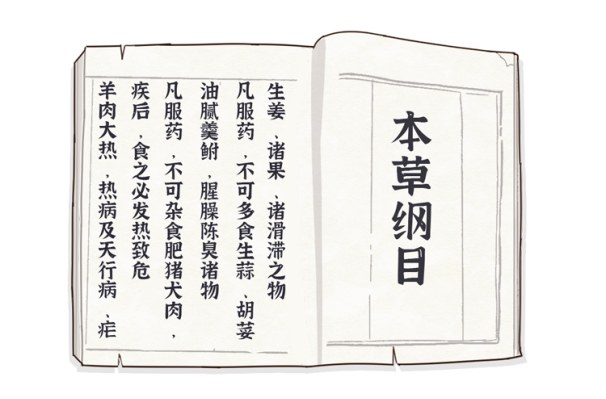 本草纲目
羊肉大热，热病及天行病、疟
疾后，食之必发热致危
凡服药，不可杂食肥猪犬肉，
油腻羹鲋，腥臊陈臭诸物
凡服药，不可多食生蒜、胡荽
生姜、诸果、诸滑滞之物